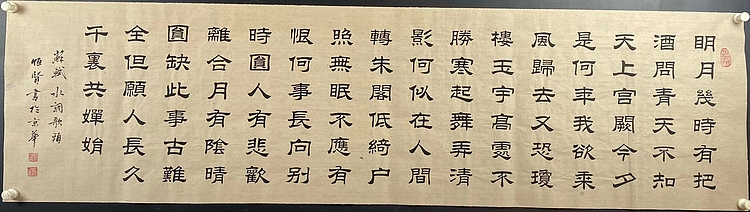 明月幾時有把
酒問青天不知
天上宫闕今夕
是何年我欲乘
風歸去又恐瓊
樓玉宇高處不
勝寒起舞弄清
影何似在人間
轉朱閣低綺户
照無眠不應有
恨何事長向别
時圓人有悲歡
離合月有陰晴
圓缺此事古難
全但願人長久
千裏共嬋娟
蘇軾 水調歌頭
恒賢書於京華